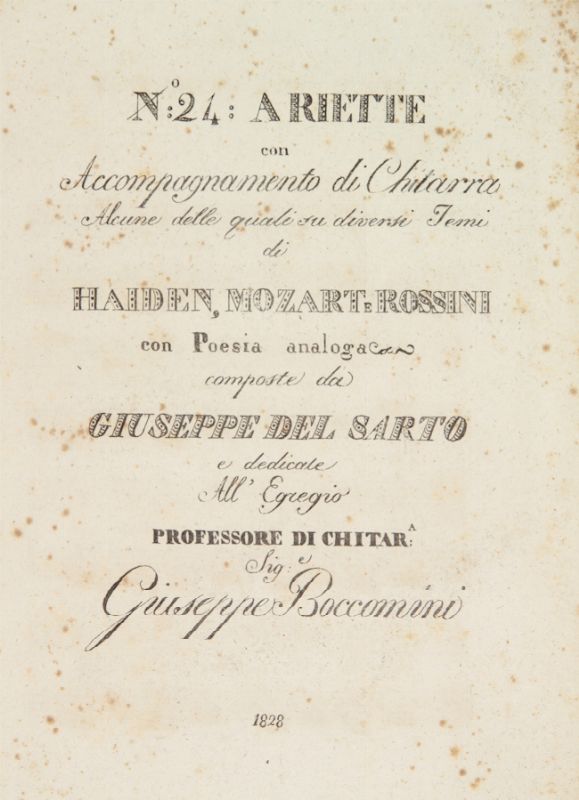 N.º: 24: ARIETTE
con
Accompagnamento di Chitarra
Alcune delle quali su diversi Temi
di
HAIDEN, MOZART E ROSSINI
con Poesia analoga
composte da
GIUSEPPE DEL SARTO
e dedicate
All' Egregio
PROFESSORE DI CHITAR.ᴬ
Sig.ᵉ
Giuseppe Boccomini
1828